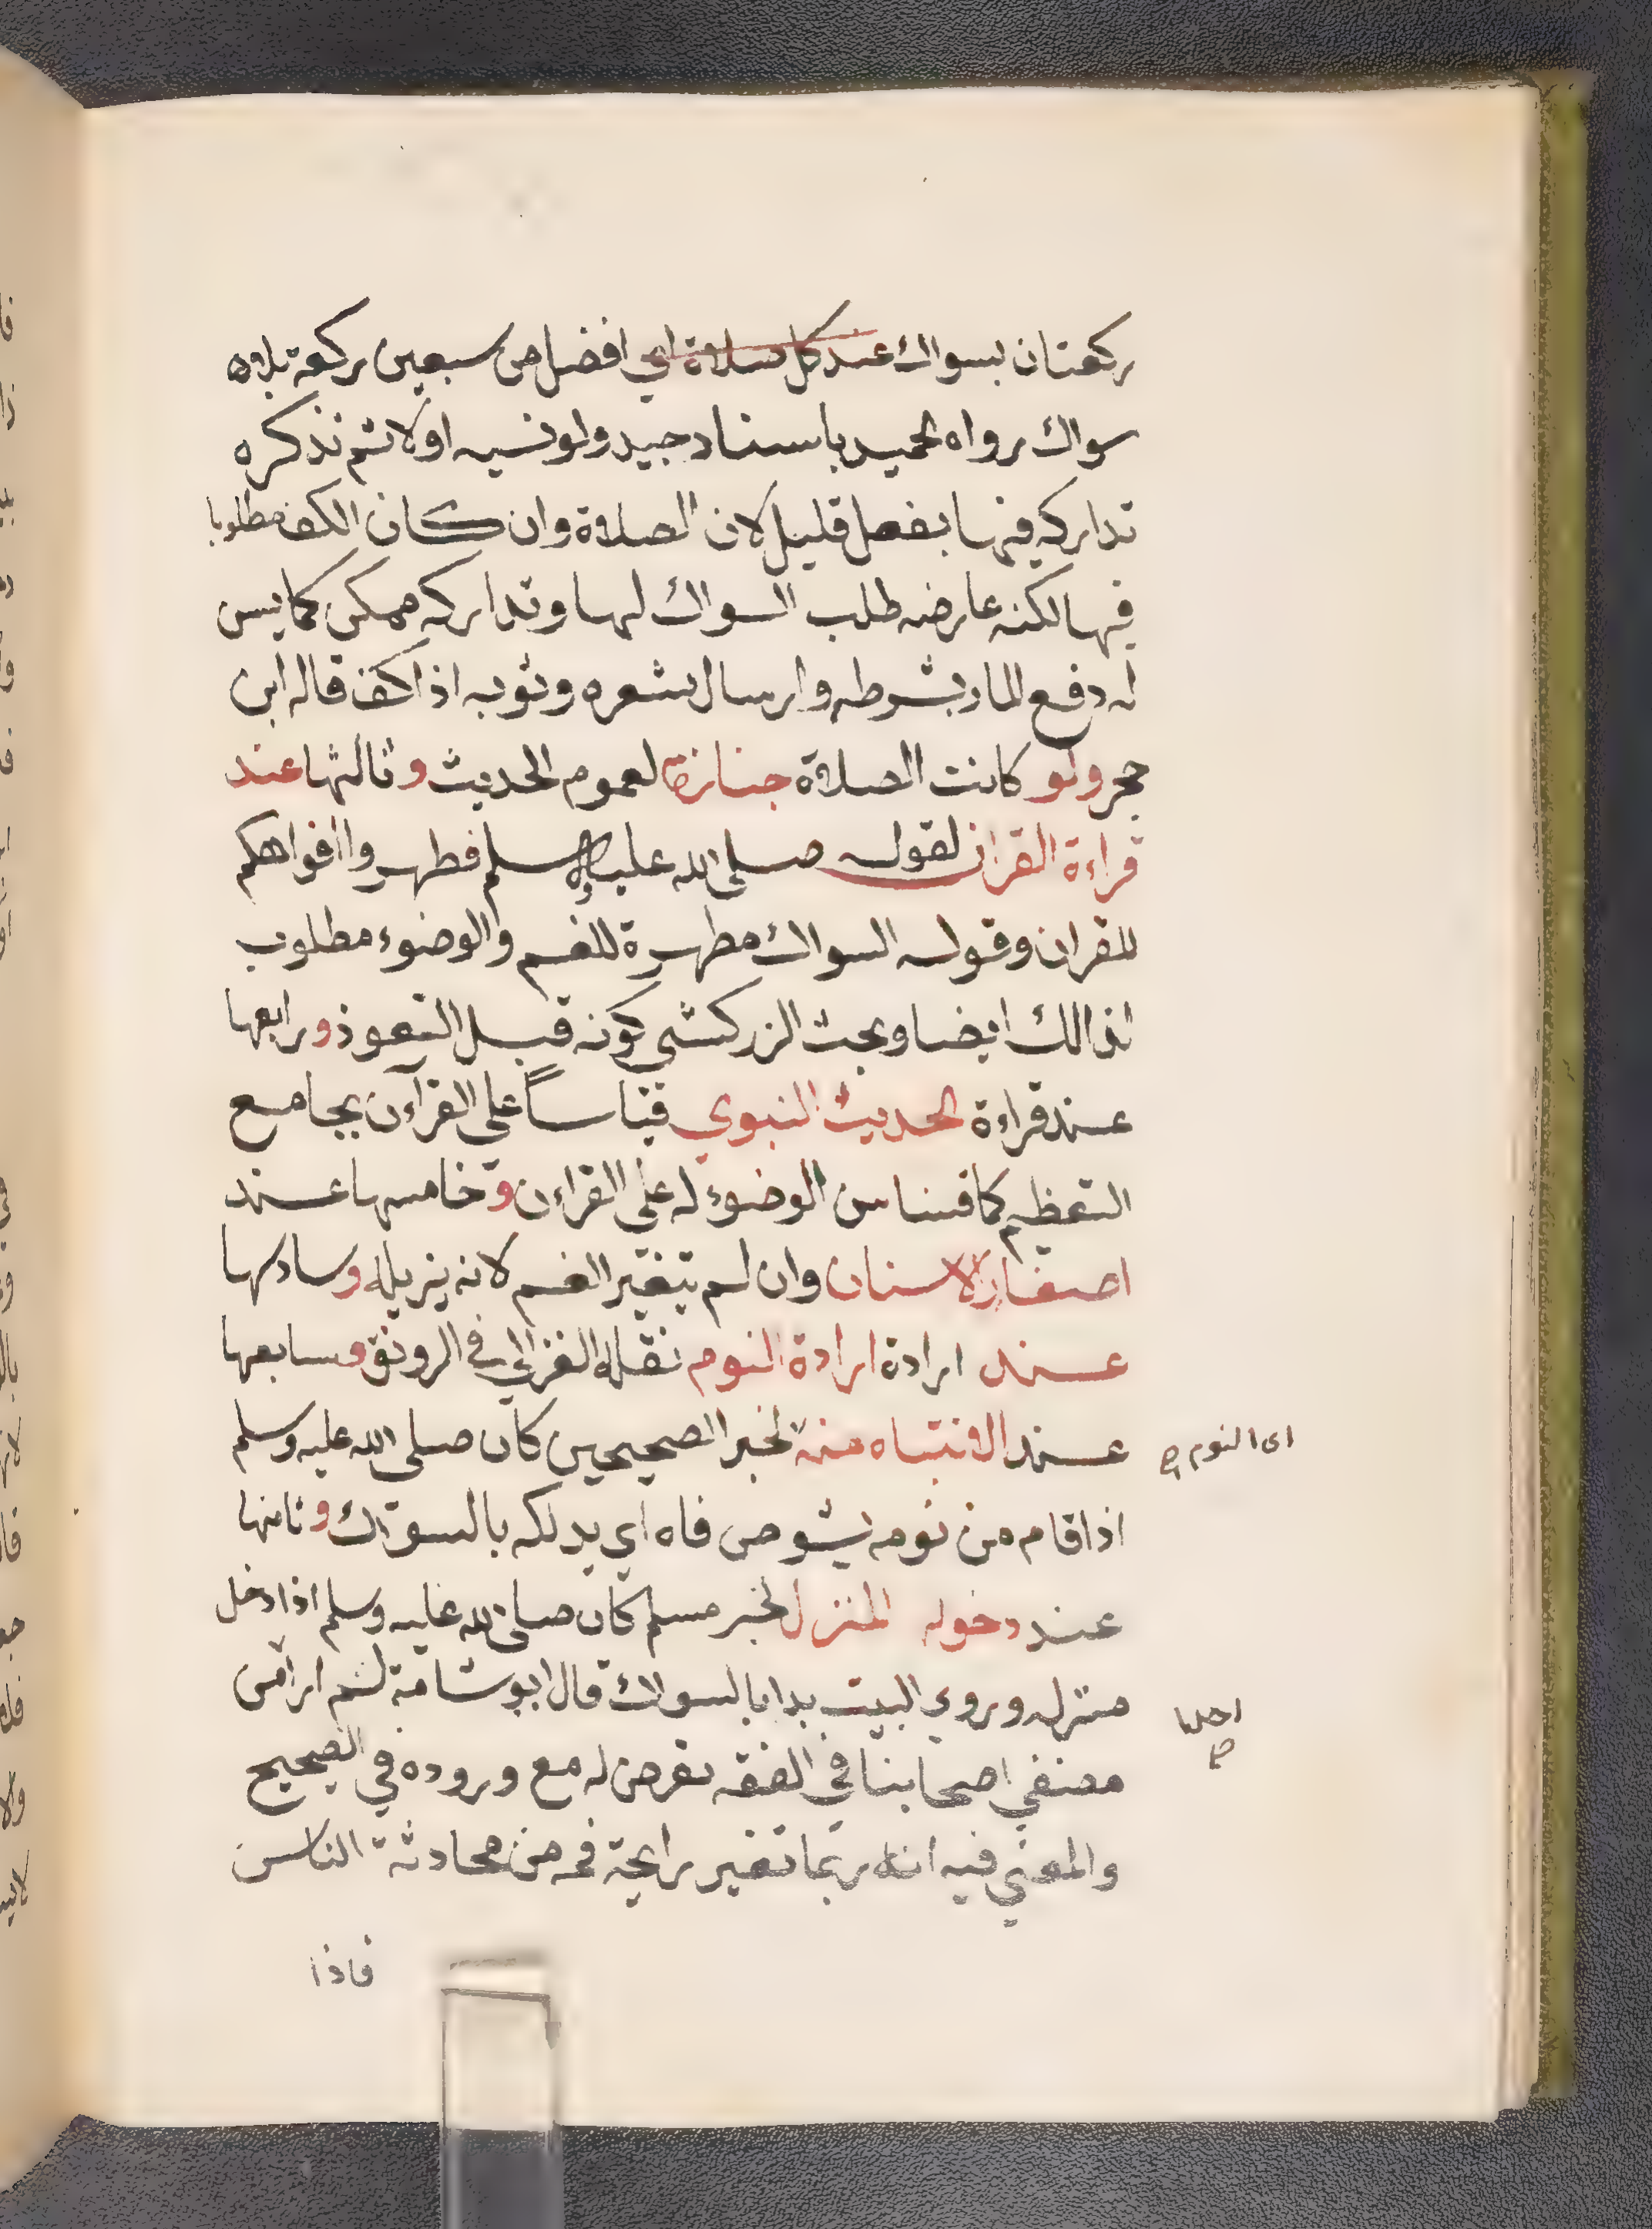 ركعتان بسواك عند كل صلاة اي افضل من سبعين ركعة بلاه
سواك رواه الحميد باسناد جيد ولو نسيه اولا ثم تذكره
تداركه فيها بفعل قليل لان الصلاة وان كان الكف مطلوبا
فيها لكنه عارضه طلب السواك لها وتداركه ممكن كما يسن
له دفع المار بشرطه وارسال شعره وثوبه اذا كف قاله ابن
حجر ولو كانت الصلاة جنازة لعموم الحديث وثالثها عند
قراءة القران لقوله صلى الله عليه وسلم فطهروا افواهكم
للقران وقوله السواك مطهرة للفم والوضوء مطلوب
لذالك ايضا وبحث الزركشي كونه قبل التعوذ ورابعها
عند قراءة الحديث النبوي قياساً على القرآن بجامع
التعظيم كما قسنا سن الوضوء له على القراءن وخامسها عند
اصفار الاسنان وان لم يتغير الفم لانه يزيله وسادسها
عند ارادة ارادة النوم نقله الغزالي في الرونق وسابعها
عند الانتباه منه لخبر الصحيحين كان صلى الله عليه وسلم
اى النوم صح
اذا قام من نومه يشوص فاه اي يدلكه بالسواك وثامنها
عند دخوله المنزل لخبر مسلم كان صلى الله عليه وسلم اذا دخل
منزله وروي البيت بدا بالسواك قال ابو شامة لم ار من
احدا صح
مصنفي اصحابنا في الفقه تعرض له مع وروده في الصحيح
والمعني فيه انه ربما تغير رايحة فمه من محادثة الناس
فاذا